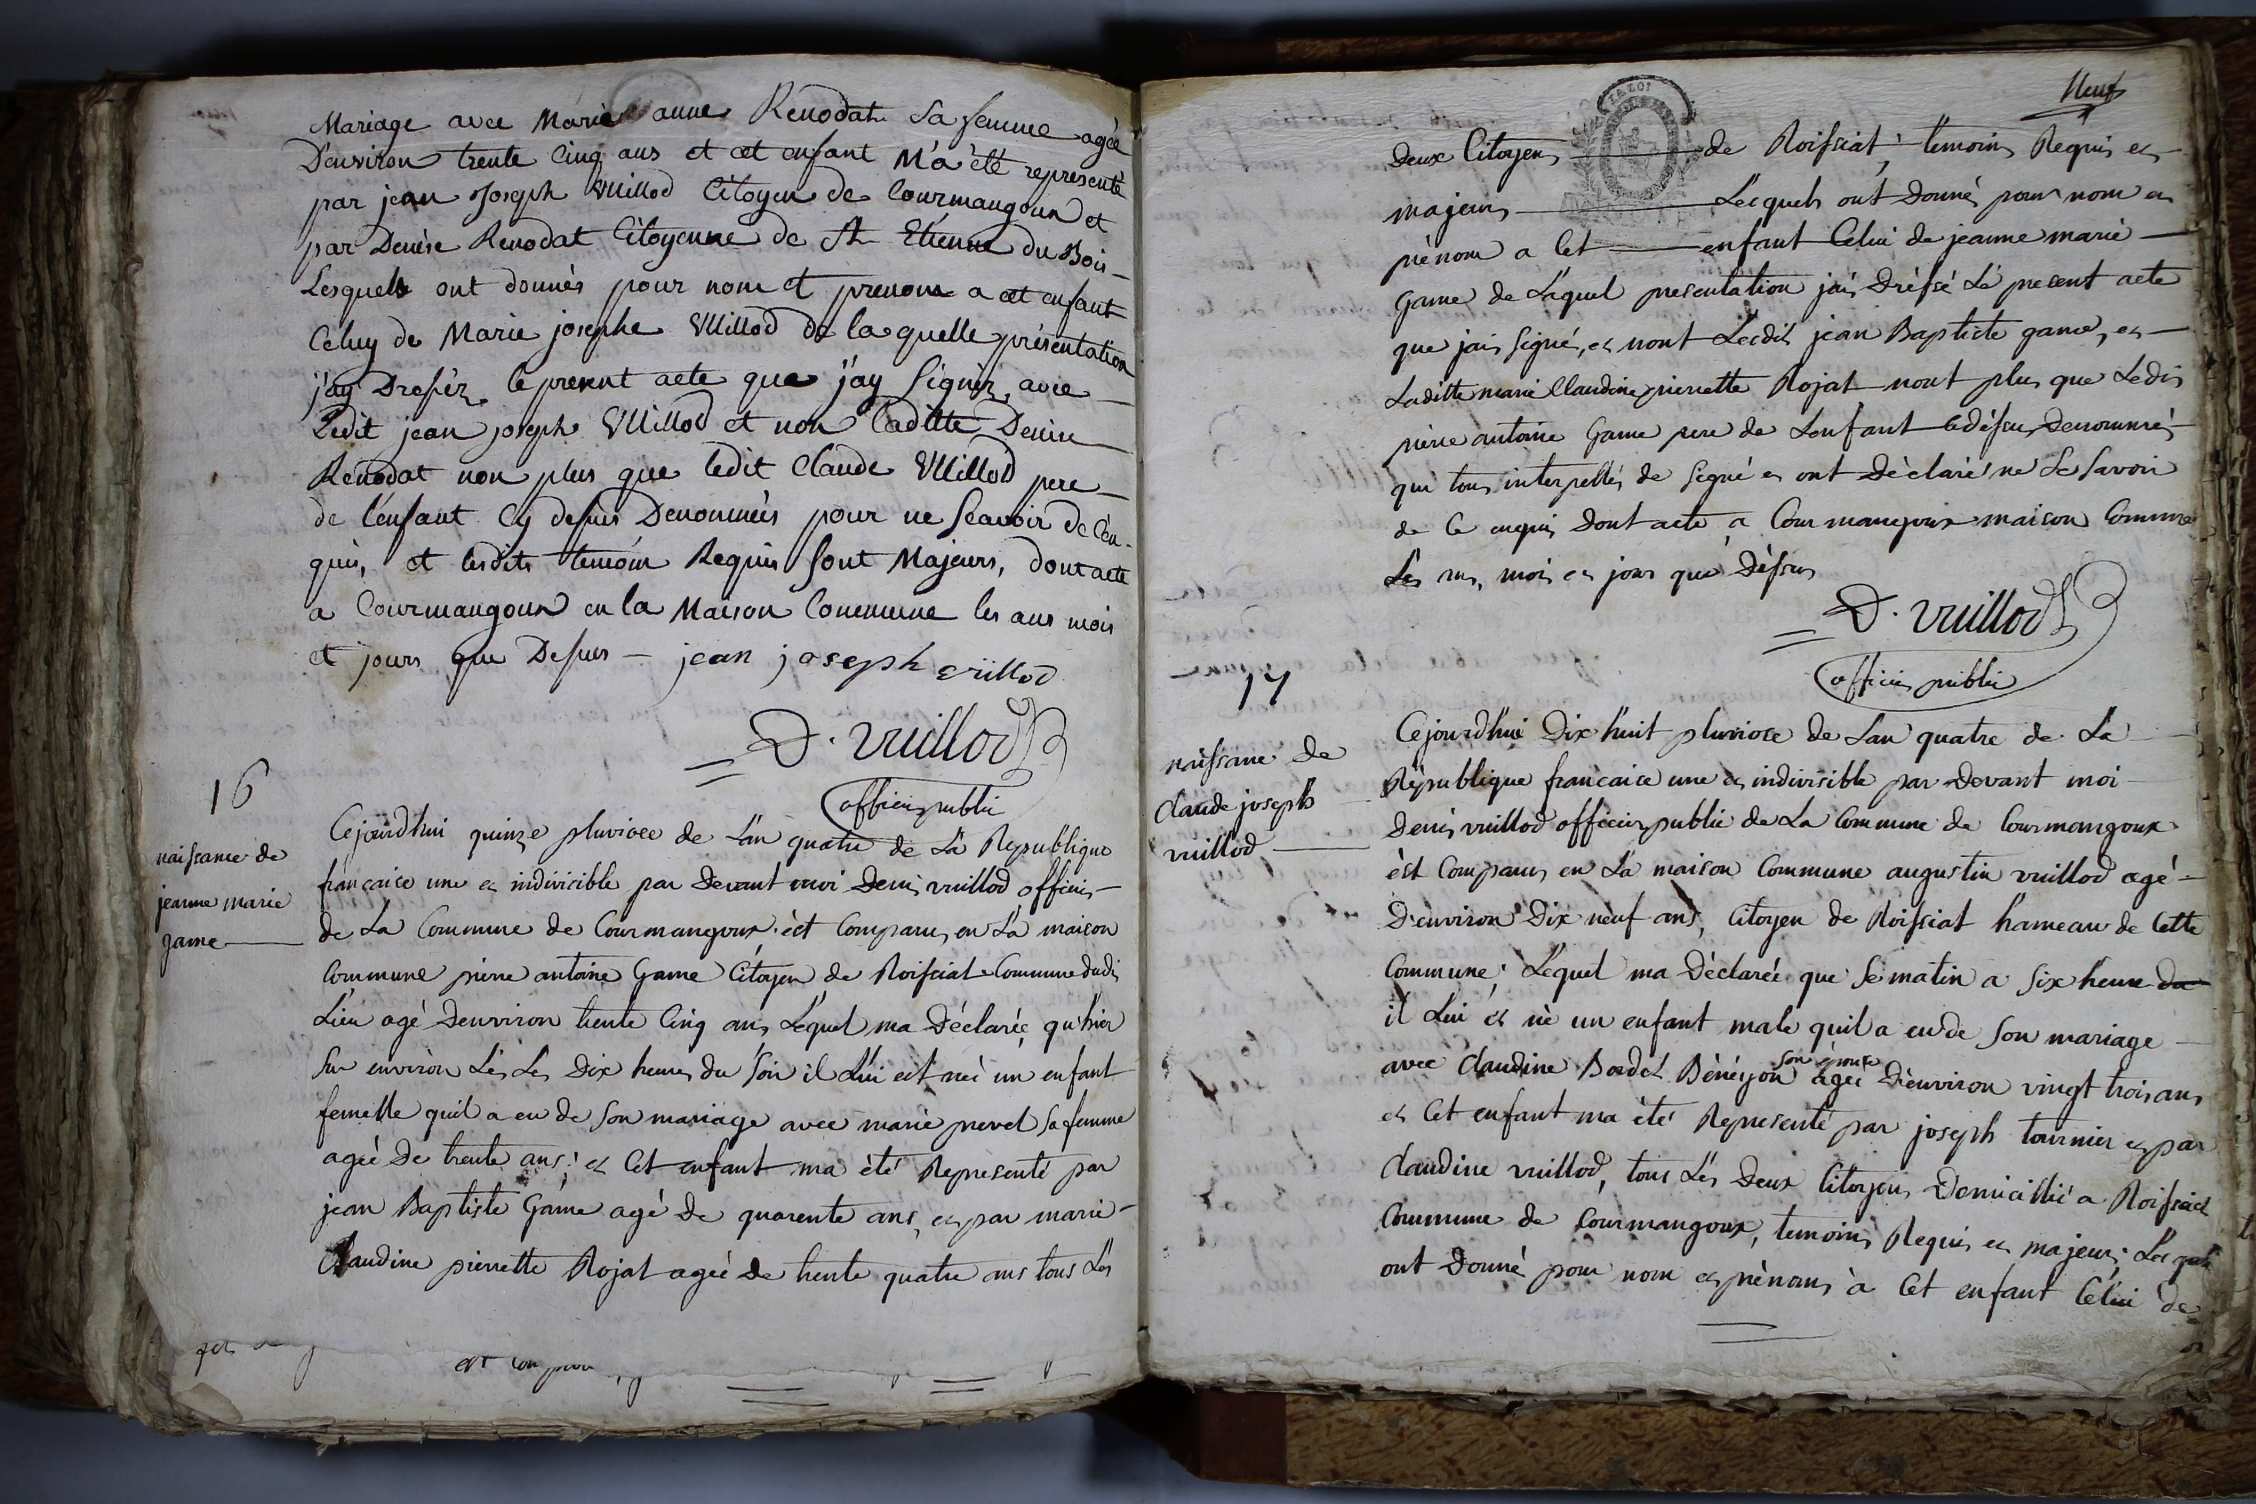 Mariage avec Marie anne Renodat Sa femme agée
D'environ trente Cinq ans et cet enfant M'a été representé
par jean Joseph Vuillod Citoyen de Courmangoux et
par Denise Renodat Citoyenne de St Etienne du Bois
Lesquels ont donnés pour nom et prenom a cet enfant
Celuy de Marie josephe Vuillod de la quelle présentation
j'ay Dressér le present acte que j'ay Signér avec
Ledit jean joseph Vuillod et non Laditte Denise
Renodat non plus que ledit Claude Vuillod pere
de l'enfant Cy dessus Denommés pour ne Scavoir de Cen
quis, et lesdits temoin Requis Sont Majeurs, dont acte
a Courmangoux en la Maison Commune les ans mois
et jours que Dessus — jean joseph vuillod
D. Vuillod
officier public
16
naissance de
jeanne marie
game
Cejourd'hui quinze pluviose de L'an quatre de La Republique
francaise une et indivisible par Devant moi Denis vuillod officier
de La Commune de Courmangoux est Comparu en La maison
Commune pierre antoine Game Citoyen de Roissiat Commune dudi
Lieu agé Denviron trente Cinq ans Lequel ma Déclarée qu'hier
Sur environ Les Les Dix heures du Soir il Lui est née un enfant
femelle quil a eu de Son mariage avec marie prevel Sa femme
agée De trente ans; et Cet enfant ma été Representé par
jean Baptiste Game agé De quarente ans, et par marie
Claudine pierrette Rojat agée de trente quatre ans tous Les
est Compa
Neuf
Deux Citoyens de Roissiat; temoins Requis et
majeurs Lesquels ont Donnés pour nom et
prénom a Cet enfant Celui de jeanne marie
Game de Laquel presentation jais Dréssé Le present acte
que jais Signé, et nont Lesdit jean Baptiste game, et
Laditte marie Claudine pierrette Rojat nont plus que Ledit
pierre antoine Game pere de Lenfant Cidéssus Denommés
qui tous interpellés de Signé et ont Déclaré ne Le Savoir
de Ce enquis Dont acte a Courmangoux maison Commune
Les ans, mois et jour que Déssus
D. Vuillod
officier public
17
naissance de
Claude joseph
vuillod
Cejourd'hui Dix huit pluviose de Lan quatre de La
République francaise une et indivisible par Devant moi
Denis vuillod officier public de La Commune de Courmangoux
est Comparus en La maison Commune augustin vuillod agé
D'environ Dix neuf ans, Citoyen de Roissiat hameau de Cette
Commune; Lequel ma Déclarée que Se matin a Six heure du
il Lui est né un enfant male quil a eu de Son mariage
avec Claudine Bordet Bénéyon son épouse agée D'environ vingt trois ans
et Cet enfant ma été Representé par joseph tournier et par
Claudine vuillod, tous Les Deux Citoyens Domicillié a Roissiat
Commune de Courmangoux, temoins Requis et majeurs; Lesquels
ont Donné pour nom et prénoms à Cet enfant Celui de